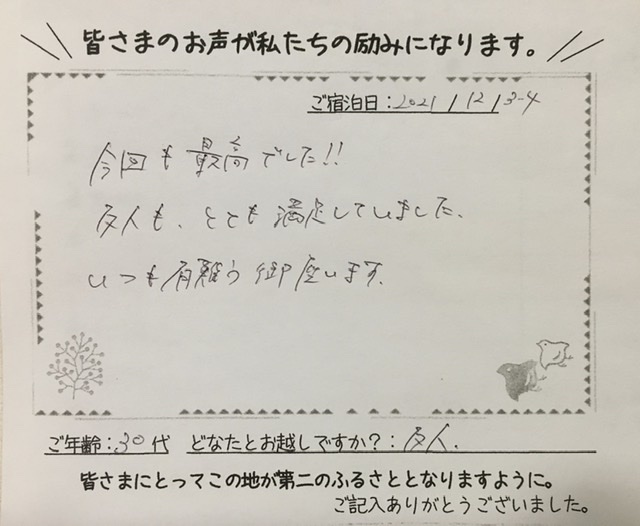 皆さまのお声が私たちの励みになります。
ご宿泊日:2021/12/3-4
今回も最高でした!!
友人も、とても満足していました。
いつも有難う御座います。
ご年齢:30代 どなたとお越しですか?:友人.
皆さまにとってこの地が第二のふるさととなりますように。
ご記入ありがとうございました。